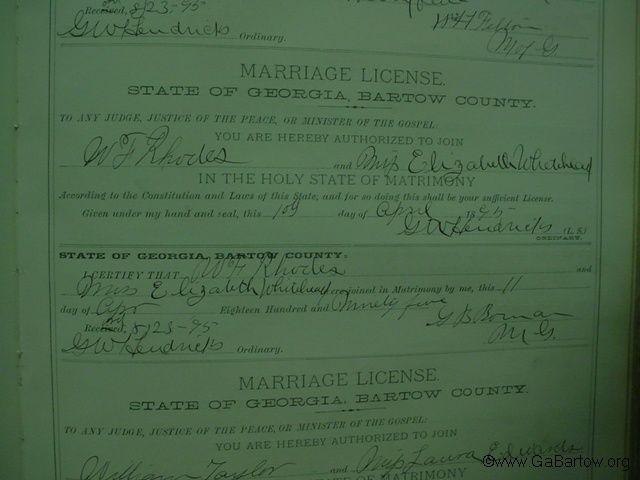 Received, 8/23-95
G W Hendricks Ordinary.
M of G.
MARRIAGE LICENSE.
STATE OF GEORGIA, BARTOW COUNTY.
TO ANY JUDGE, JUSTICE OF THE PEACE, OR MINISTER OF THE GOSPEL:
YOU ARE HEREBY AUTHORIZED TO JOIN
W F Rhodes and Miss Elizabeth Whitehead
IN THE HOLY STATE OF MATRIMONY
According to the Constitution and Laws of this State, and for so doing this shall be your sufficient License.
Given under my hand and seal, this 10 day of April 1895
G W Hendricks (L. S.)
ORDINARY.
STATE OF GEORGIA, BARTOW COUNTY:
I CERTIFY THAT W F Rhodes and
Miss Elizabeth Whitehead were joined in Matrimony by me, this 11
day of Apr Eighteen Hundred and Ninety five
G B Boman
Received, 8/23-95 M G.
G W Hendricks Ordinary.
MARRIAGE LICENSE.
STATE OF GEORGIA, BARTOW COUNTY.
TO ANY JUDGE, JUSTICE OF THE PEACE, OR MINISTER OF THE GOSPEL:
YOU ARE HEREBY AUTHORIZED TO JOIN
William Taylor and Miss Laura Edwards
MATRIMONY
©www.GaBartow.org